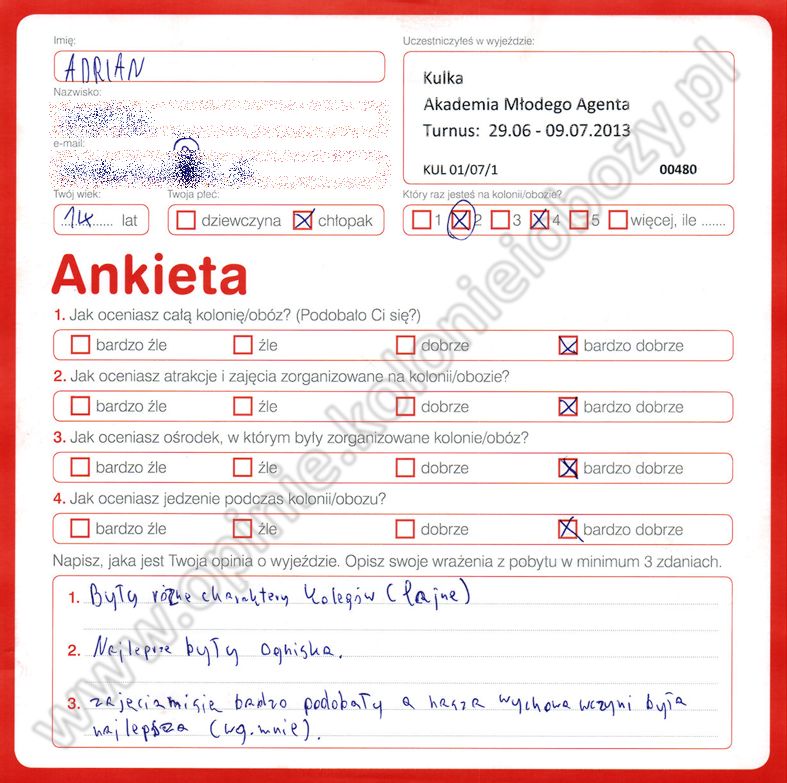 Imię:
ADRIAN
Uczestniczyłeś w wyjeździe:
Kulka
Akademia Młodego Agenta
Turnus: 29.06 - 09.07.2013
KUL 01/07/1 00480
Nazwisko:
e-mail:
Twój wiek:
14 lat
Twoja płeć:
dziewczyna chłopak
Który raz jesteś na kolonii/obozie?
1 2 3 4 5 więcej, ile .......
Ankieta
1. Jak oceniasz całą kolonię/obóz? (Podobało Ci się?)
bardzo źle źle dobrze bardzo dobrze
2. Jak oceniasz atrakcje i zajęcia zorganizowane na kolonii/obozie?
bardzo źle źle dobrze bardzo dobrze
3. Jak oceniasz ośrodek, w którym były zorganizowane kolonie/obóz?
bardzo źle źle dobrze bardzo dobrze
4. Jak oceniasz jedzenie podczas kolonii/obozu?
bardzo źle źle dobrze bardzo dobrze
Napisz, jaka jest Twoja opinia o wyjeździe. Opisz swoje wrażenia z pobytu w minimum 3 zdaniach.
1. Były różne charaktery kolegów (fajne)
2. Najleprze były ogniska.
3. zajęcia mi się bardzo podobały a nasza wychowawczyni była
najlepsza (wg. mnie).
www.opinie.kolonieiobozy.pl